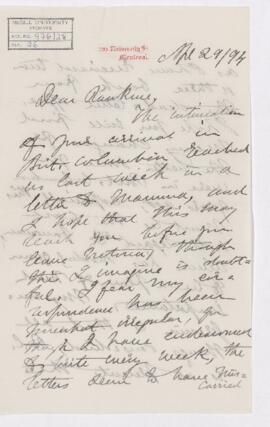 McGILL UNIVERSITY
ARCHIVES
ACC. NO.
REF. 36
Ap 29/94
Montreal.
Dear Rankine,
The intimation
of your arrival in
Brit. Columbia reached
us last week in a
letter to Mamma, and
I hope that this may
reach you before you
leave Victoria, though
this I imagine is doubt-
ful. I fear my cor-
respondence has been
somewhat irregular, for
though I have endeavoured
to write every week, the
letters seem to have mis-
carried